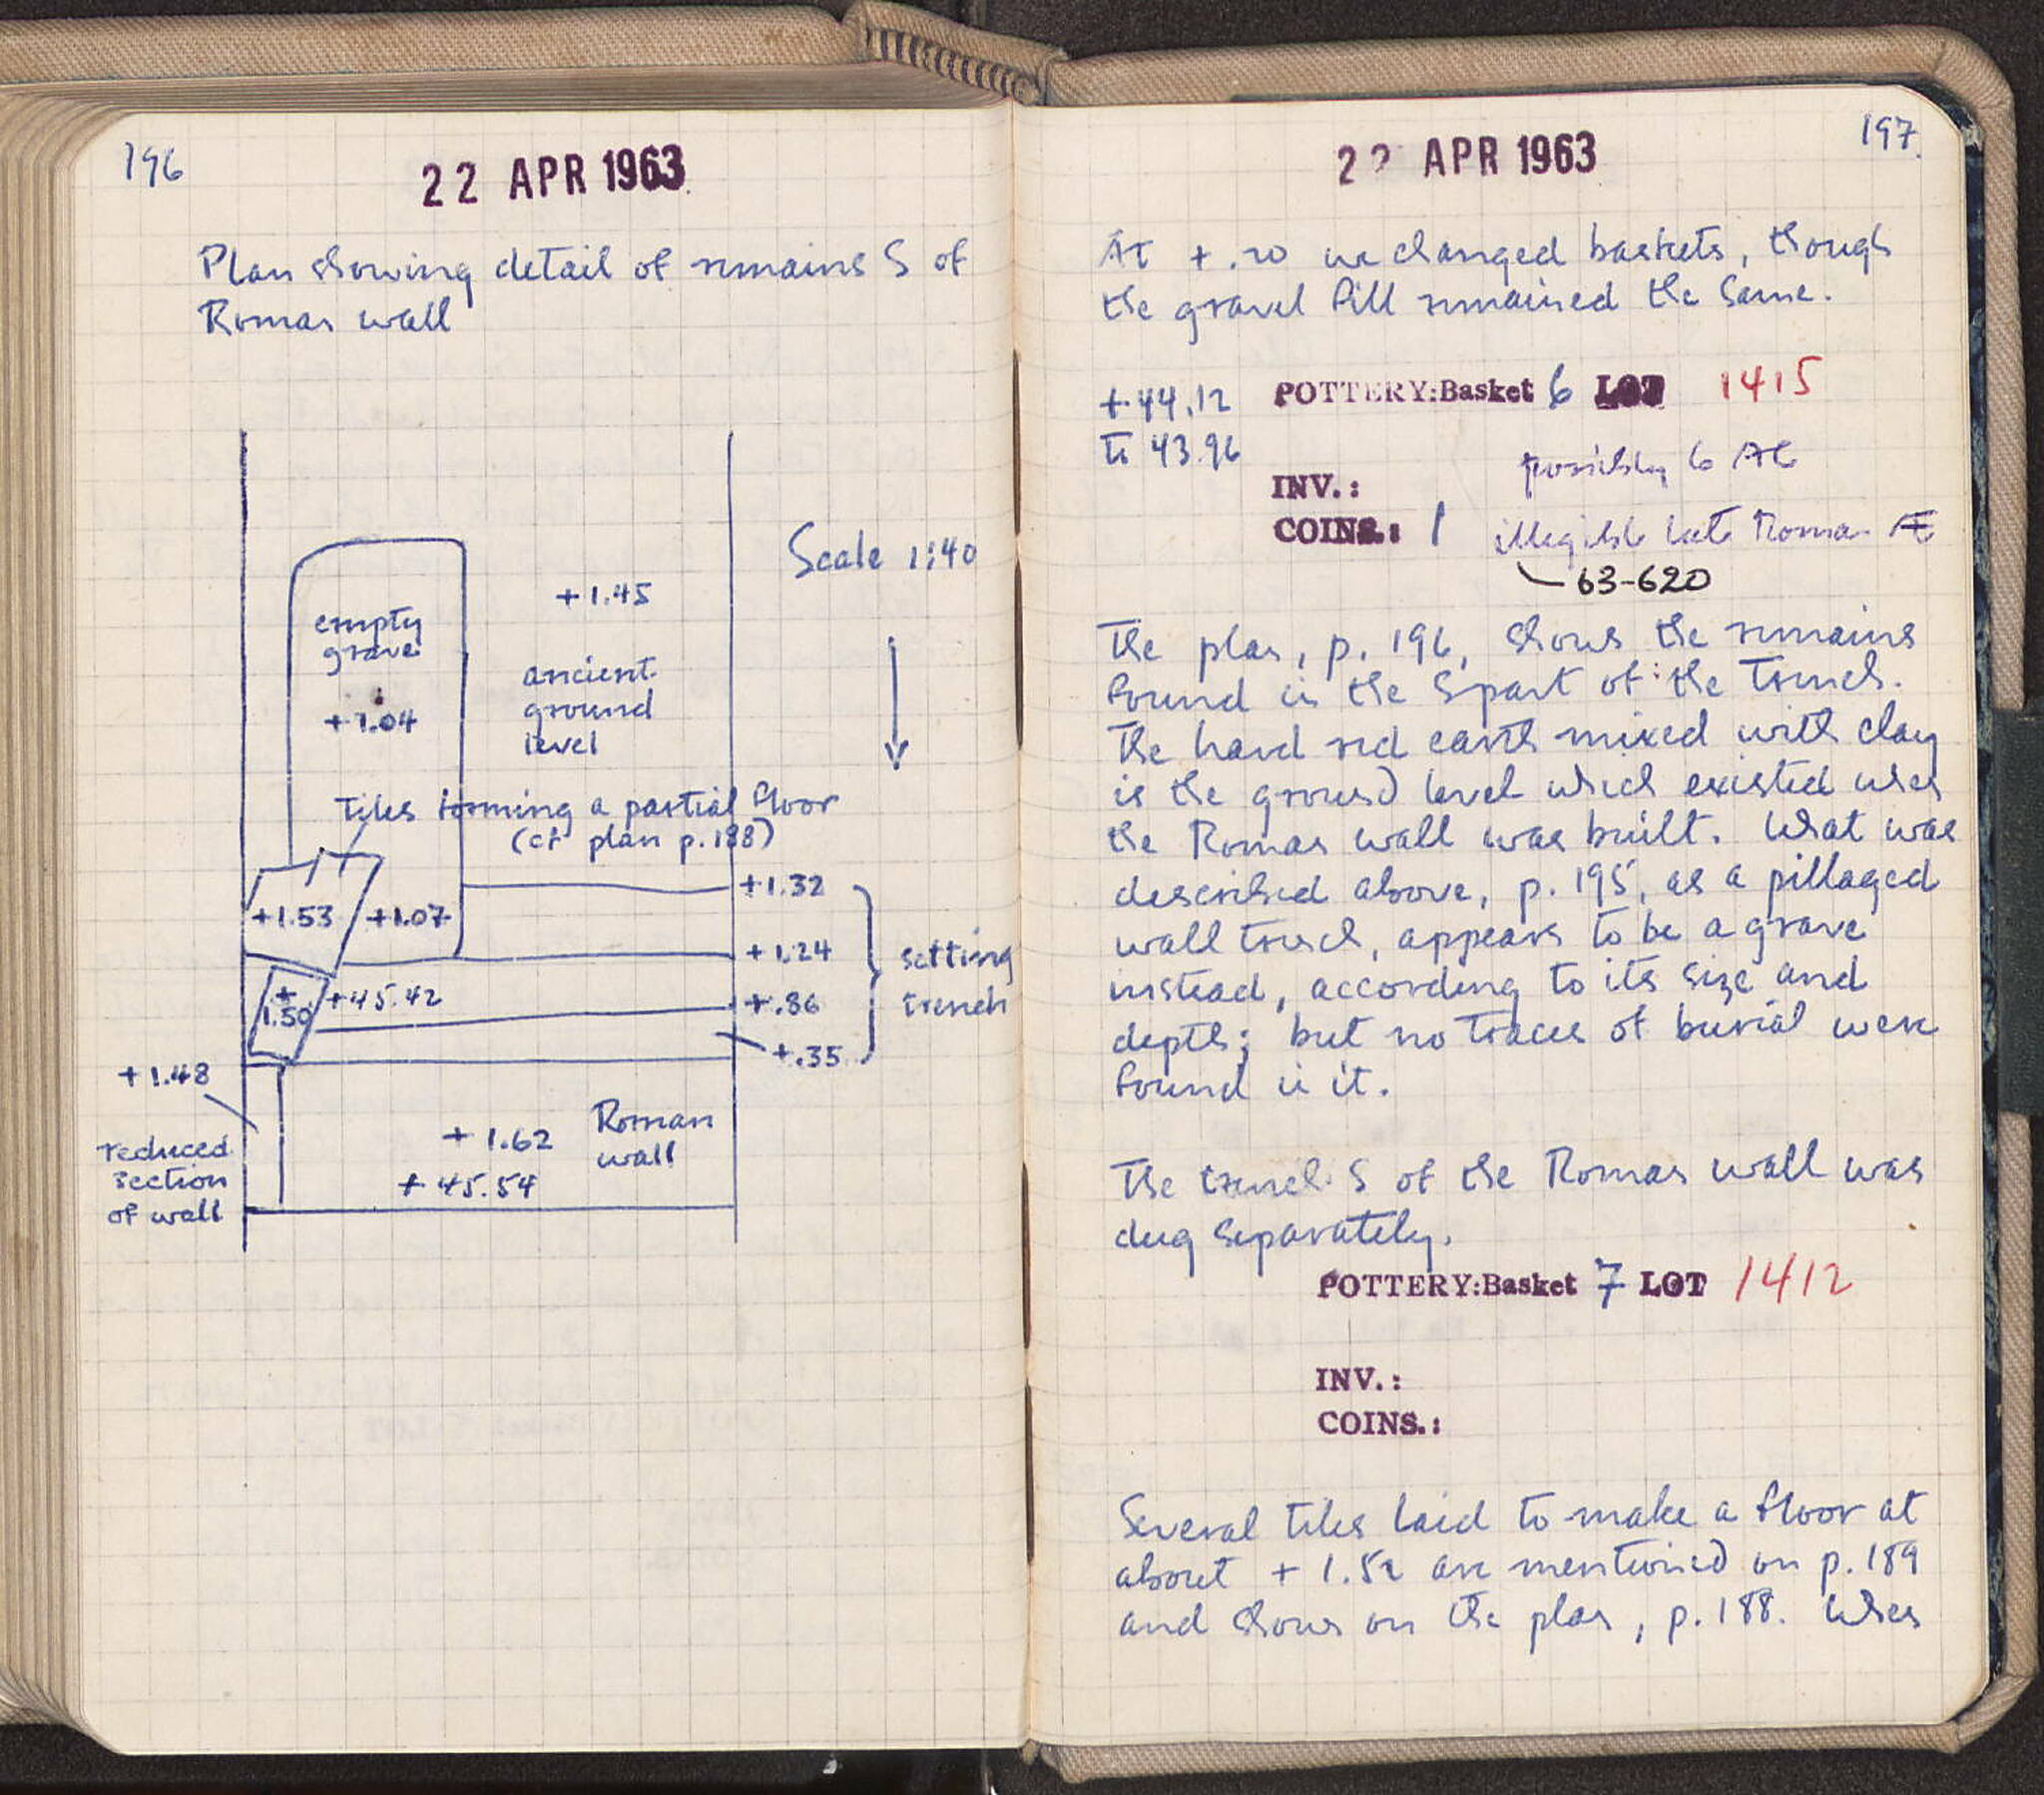 196
22 APR 1963
Plan showing detail of remains S of
Roman wall
Scale 1:40
empty
grave
+1.04
+1.45
ancient
ground
level
Tiles forming a partial floor
(cf plan p.188)
+1.32
+1.53
+1.07
+1.24
setting
trench
+
1.50
+45.42
+.86
+.35
+1.48
reduced
section
of wall
+1.62
Roman
wall
+45.54
197
22 APR 1963
At +.20 we changed baskets, though
the gravel fill remained the same.
+44.12
to 43.96
POTTERY:Basket 6 LOT 1415
possibly 6 AC
INV.:
COINS.: 1 illegible late Roman Æ
63-620
The plan, p. 196, shows the remains
found in the S part of the Trench.
The hard red earth mixed with clay
is the ground level which existed when
the Roman wall was built. What was
described above, p. 195, as a pillaged
wall trench, appears to be a grave
instead, according to its size and
depth; but no traces of burial were
found in it.
The trench S of the Roman wall was
dug separately.
POTTERY:Basket 7 LOT 1412
INV.:
COINS.:
Several tiles laid to make a floor at
about +1.52 are mentioned on p.189
and shown on the plan, p.188. When